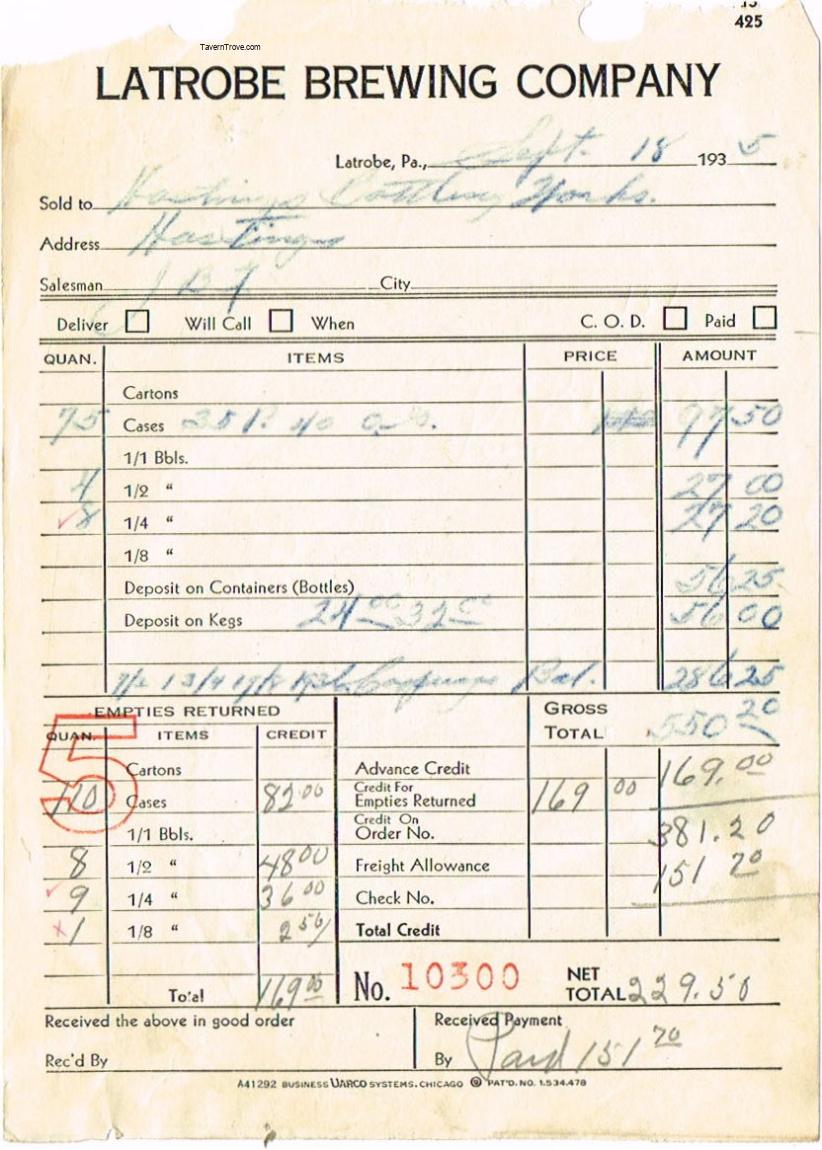 TavernTrove.com
15
425
LATROBE BREWING COMPANY
Latrobe, Pa., Sept. 18 1935
Sold to Hastings Bottling Works.
Address Hastings
Salesman City
Deliver Will Call When C. O. D. Paid
QUAN. ITEMS PRICE AMOUNT
Cartons
75 Cases 97 50
1/1 Bbls.
4 1/2 " 27 00
8 1/4 " 27 20
1/8 "
Deposit on Containers (Bottles) 56 25
Deposit on Kegs 24 00 32 00 56 00
Bal. 286 25
EMPTIES RETURNED GROSS TOTAL 550 20
5
QUAN. ITEMS CREDIT
Cartons Advance Credit 169.00
110 Cases 82.00 Credit For Empties Returned 169 00
1/1 Bbls. Credit On Order No. 381.20
8 1/2 " 48 00 Freight Allowance 151 70
9 1/4 " 36 00 Check No.
1 1/8 " 2 50 Total Credit
Total 169 00 No. 10300 NET TOTAL 229.50
Received the above in good order Received Payment
Rec'd By By Paid 151 70
A41292 BUSINESS UARCO SYSTEMS. CHICAGO PAT'D. NO. 1.534.478